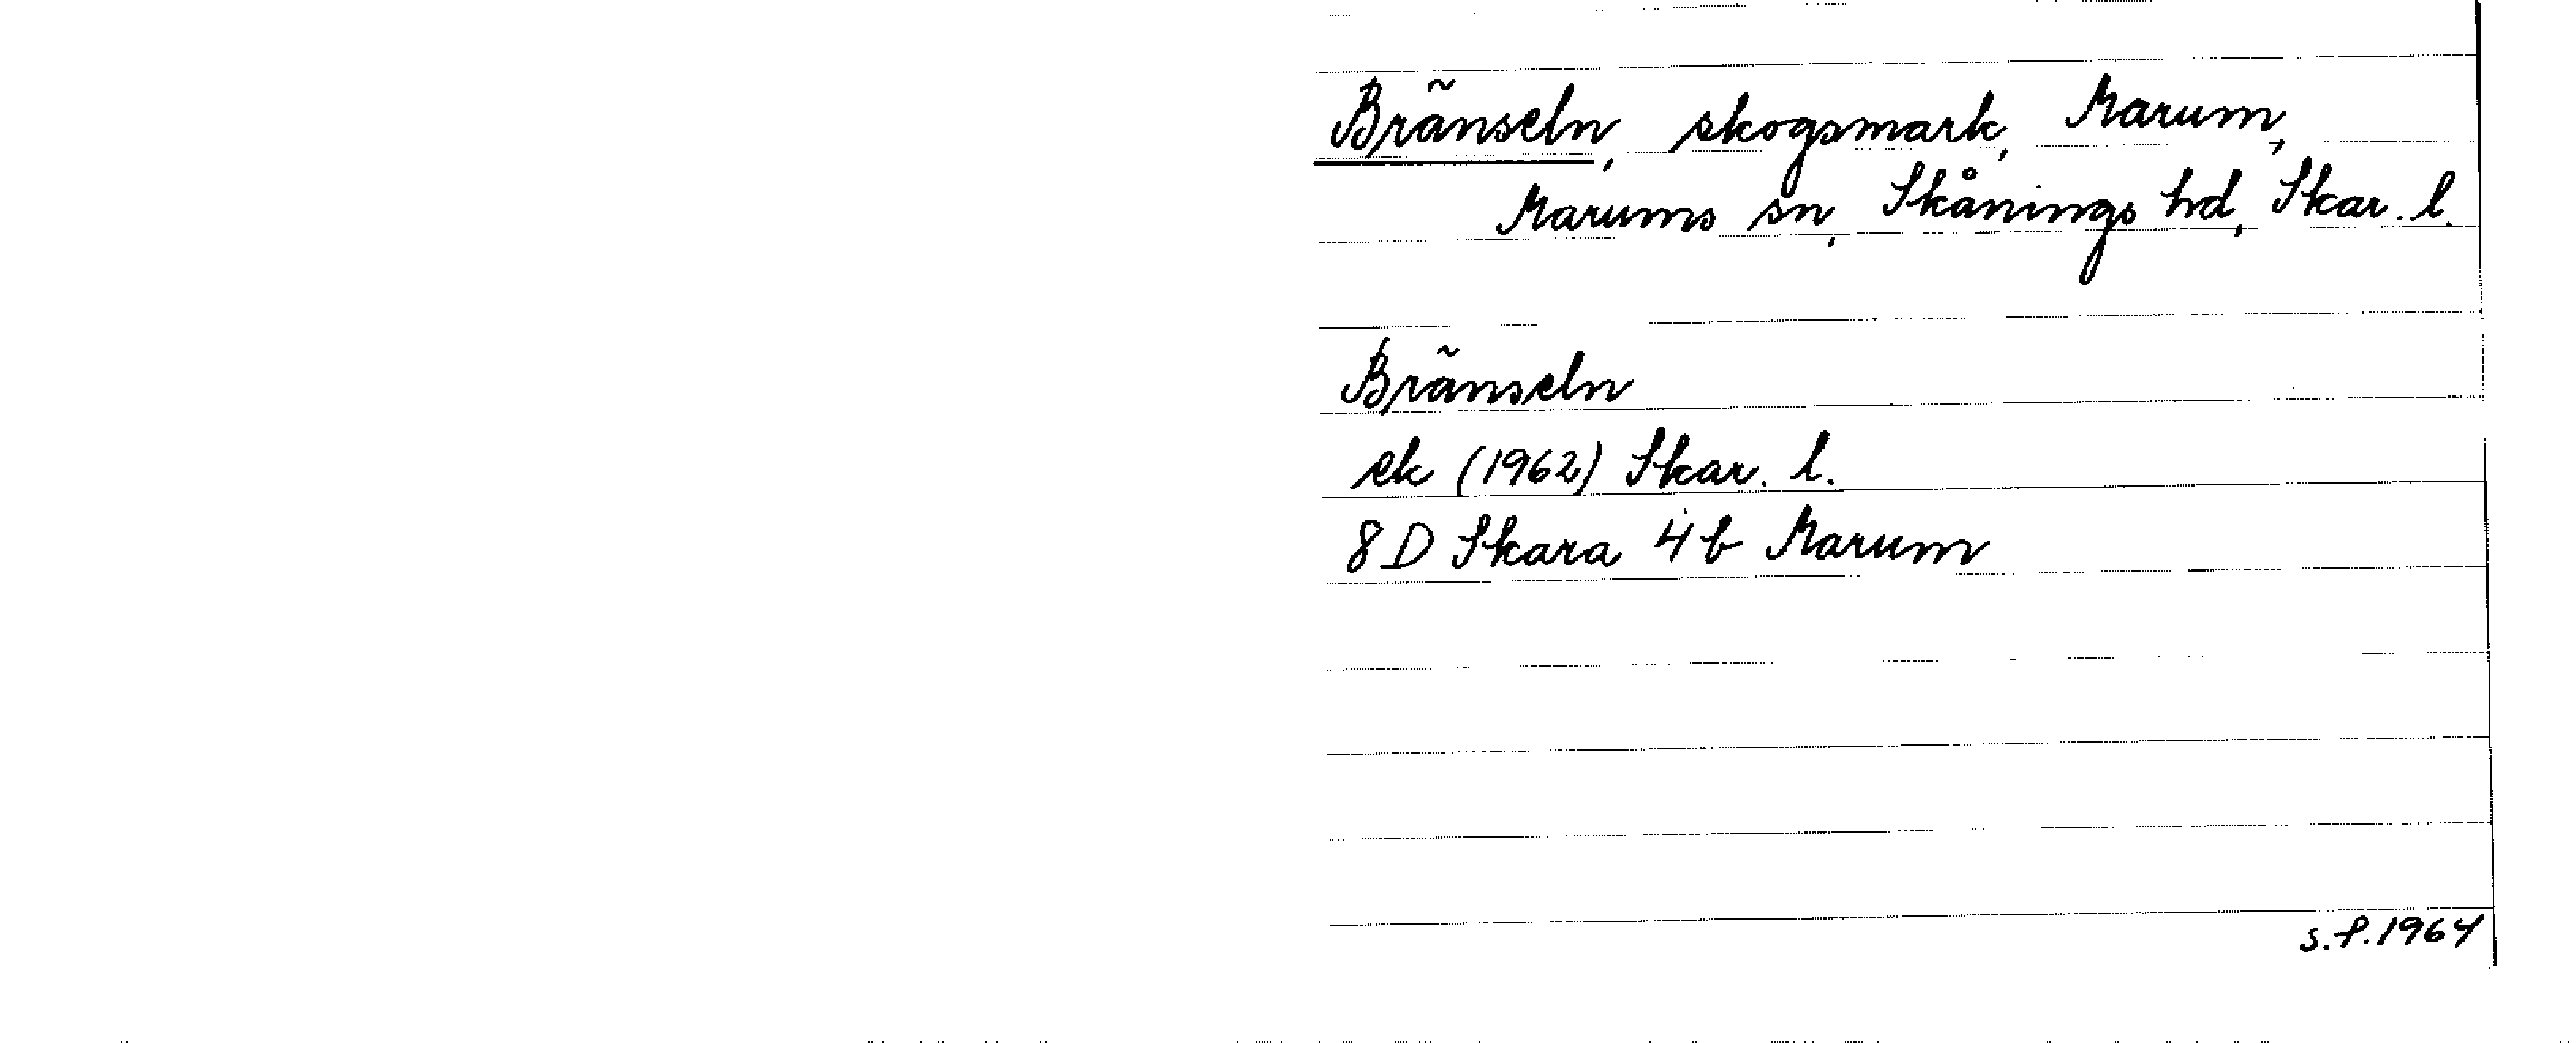 Bränseln, skogsmark, Marum,
Marums sn, Skånings hd, Skar. l.
Bränseln
ek (1962) Skar. l.
8 D Skara 4 b Marum
S.P. 1964